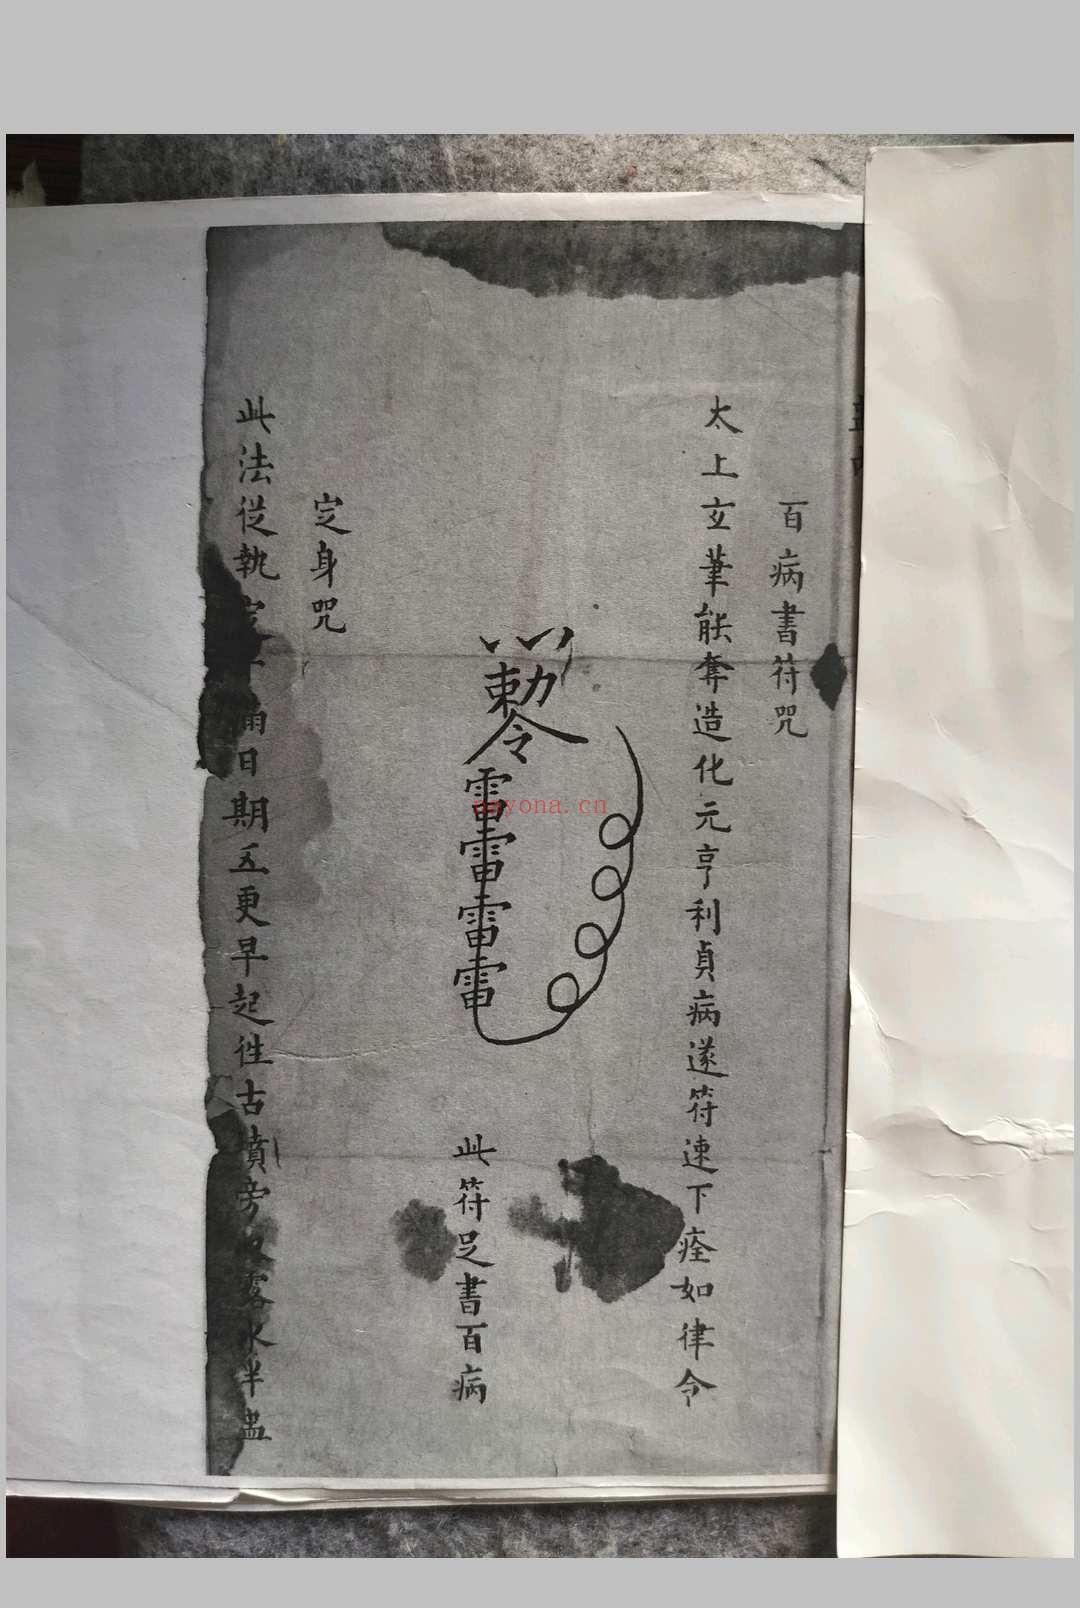 百病書符咒
太上玄筆能奪造化元亨利貞病遂符速下痊如律令
敕令
雷
雷
雷
雷
此符足書百病
定身咒
此法從執定
日期五更早起徃古墳旁
露水半盅
nayona.cn